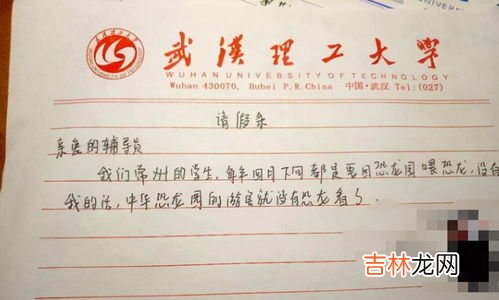 武漢理工大學
WUHAN UNIVERSITY OF TECHNOLOGY
Wuhan 430070, Hubei P.R.China 中国·武汉 Tel:(027)
请假条
亲爱的辅导员
我们常州的学生,每年四月下旬都是要回恐龙园喂恐龙,没有
我的话,中华恐龙园的游客就没有恐龙看了.
吉林龙网